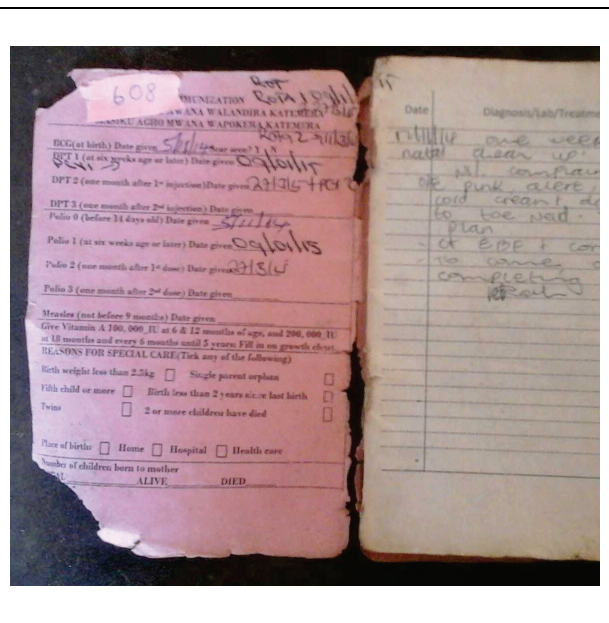 608
ROT
MUNIZATION ROTA 1 09/1/
MWANA WALANDIRA KATEMERA
AGHO MWANA WAPOKERA KATEMERA
BCG(at birth) Date given 5/11/14 Scar seen? Y N
DPT 1 (at six weeks age or later) Date given 09/01/15
PCV1
DPT 2 (one month after 1st injection)Date given 27/3/15 + PCV 2
DPT 3 (one month after 2nd injection) Date given
Polio 0 (before 14 days old) Date given 5/11/14
Polio 1 (at six weeks age or later) Date given 09/01/15
Polio 2 (one month after 1st dose) Date given 27/3/15
Polio 3 (one month after 2nd dose) Date given
Measles (not before 9 months) Date given
Give Vitamin A 100, 000_IU at 6 & 12 months of age, and 200, 000_IU
at 18 months and every 6 months until 5 years: Fill in on growth chart.
REASONS FOR SPECIAL CARE(Tick any of the following)
Birth weight less than 2.5kg Single parent orphan
Fifth child or more Birth less than 2 years since last birth
Twins 2 or more children have died
Place of birth: Home Hospital Health care
Number of children born to mother
ALIVE DIED
Date Diagnosis/Lab/Treatme
one week
natal clean up.
Nil complain
O/E pink, alert,
cord clean
Plan
ct EBF + cor
To come
completing